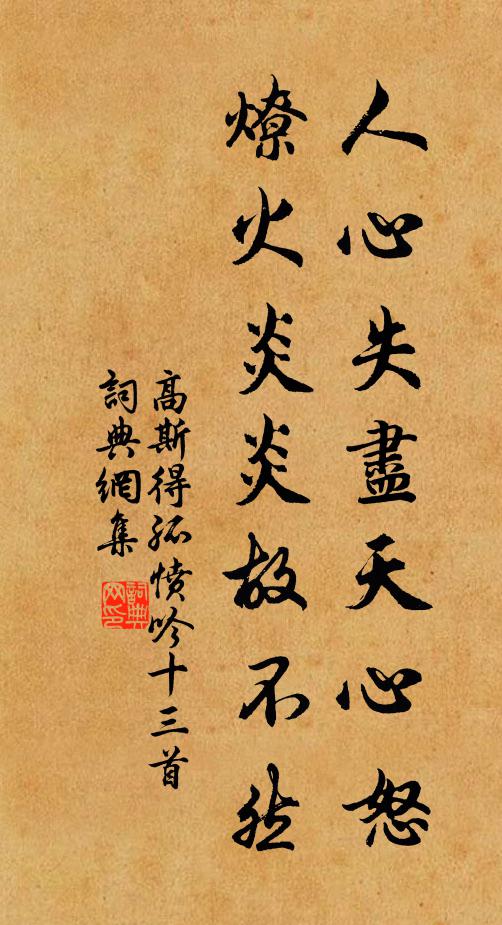 人心失盡天心怒
燎火炎炎故不然
高斯得孤憤吟十三首
詞典網集
詞典
网印